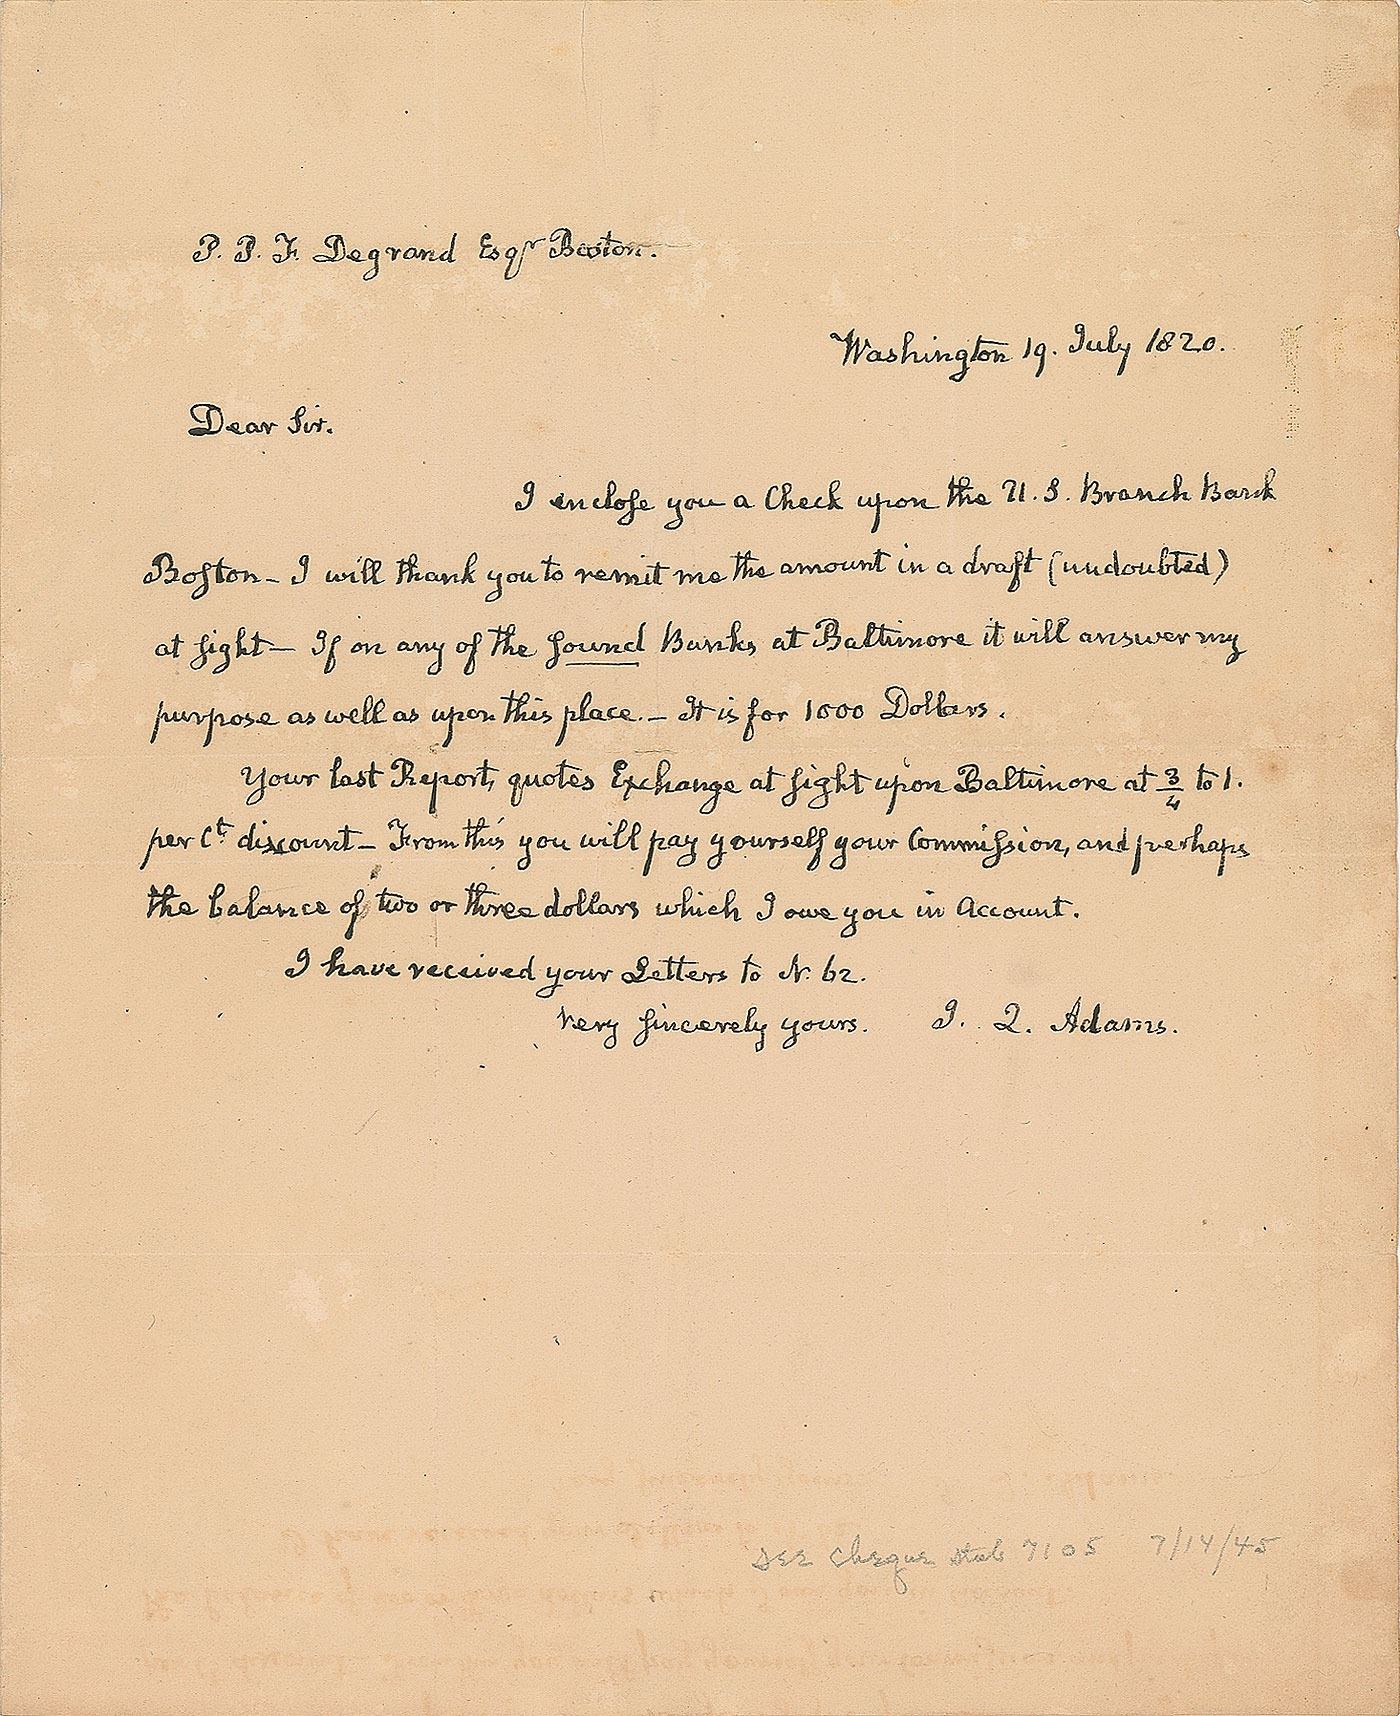 P. P. F. Degrand Esqr Boston.
Washington 19. July 1820.
Dear Sir.
I enclose you a Check upon the U. S. Branch Bank
Boston — I will thank you to remit me the amount in a draft (undoubted)
at sight — If on any of the sound Banks at Baltimore it will answer my
purpose as well as upon this place. — It is for 1000 Dollars.
Your last Report, quotes Exchange at sight upon Baltimore at 3/4 to 1.
per Ct discount — From this you will pay yourself your Commission, and perhaps
the balance of two or three dollars which I owe you in Account.
I have received your Letters to N. 62.
Very sincerely yours. J. Q. Adams.
see cheque stub 7105 7/14/45